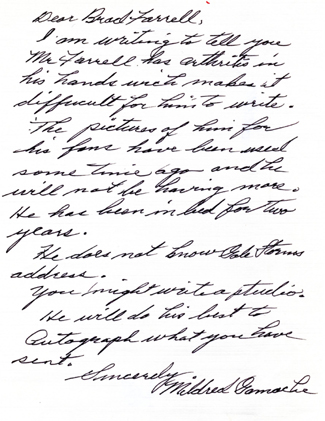 Dear Brad Farrell,
I am writing to tell you
Mr Farrell has arthritis in
his hands wich makes it
difficult for him to write.
The pictures of him for
his fans have been used
some time ago and he
will not be having more.
He has been in bed for two
years.
He does not know Gale Storms
address.
You might write a studio.
He will do his best to
Autograph what you have
sent.
Sincerely,
Mildred Gamache